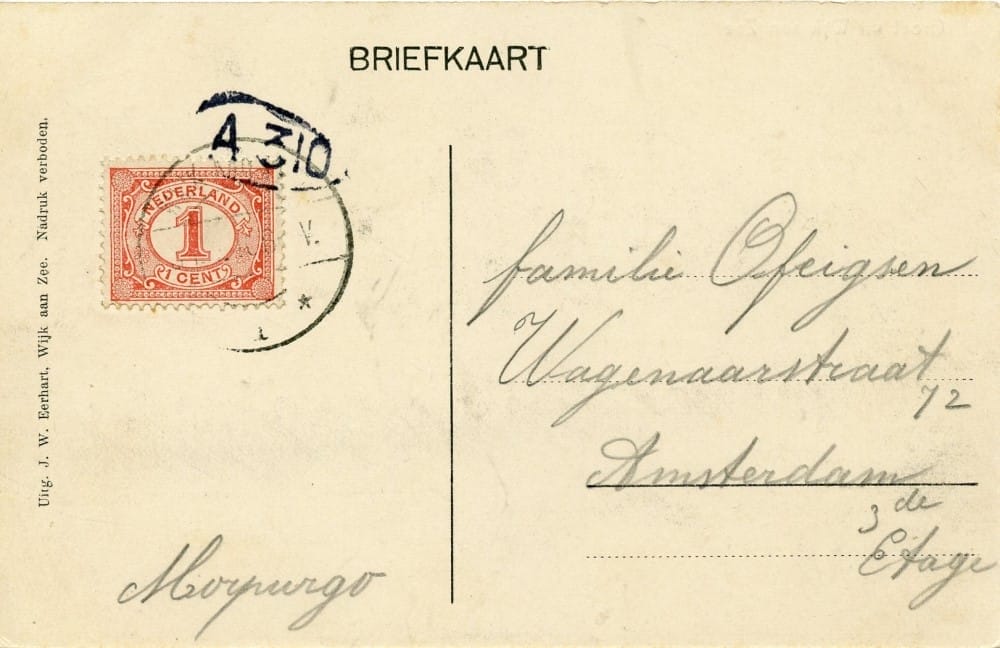 BRIEFKAART
Uitg. J. W. Eerhart, Wijk aan Zee. Nadruk verboden.
A 310
NEDERLAND
1
1 CENT
V.
familie Ofeigsen
Wagenaarstraat
72
Amsterdam
3de
Etage
Morpurgo